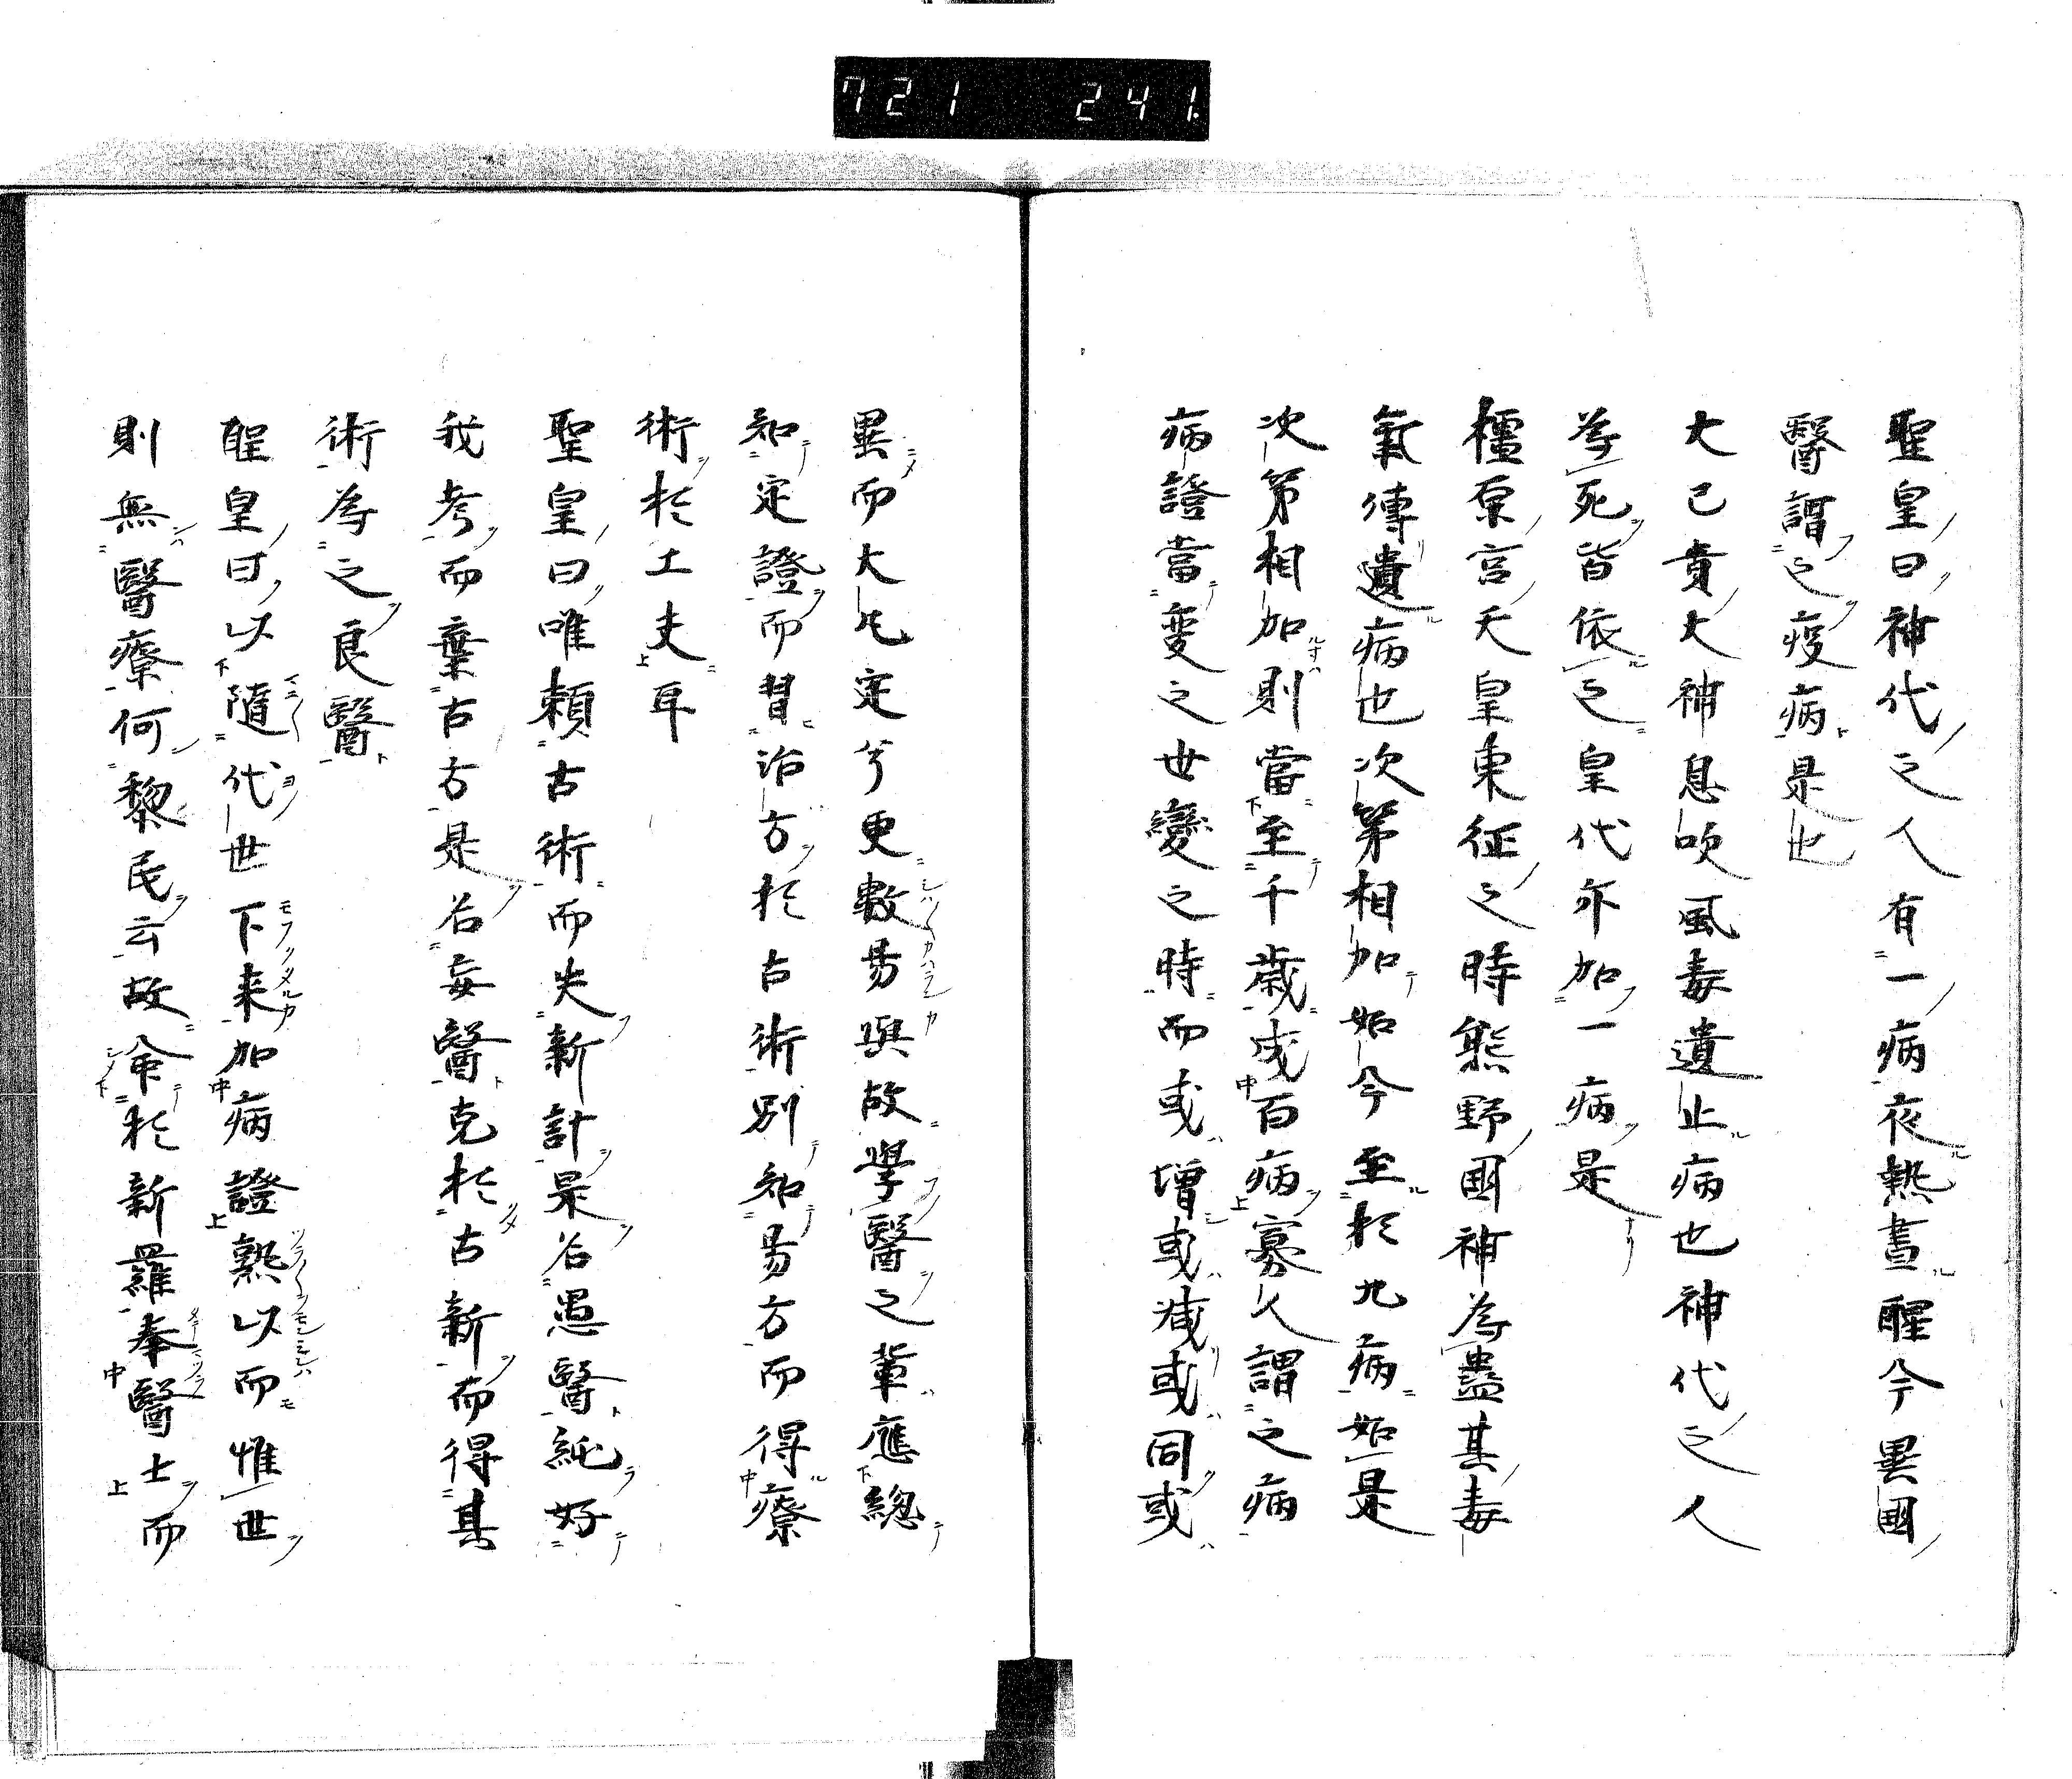 721 241.
聖皇曰神代之人有一病夜熱晝醒今異國
醫謂之疫病是也
大己貴大神息吹風毒遺止病也神代之人
為死皆依之皇代亦加一病是
橿原宮天皇東征之時熊野國神為蠱其毒
氣傳遺病也次第相加如今至於九病如是
次第相加則當至千歳成百病寡人謂之病
病證當変之世變之時而或増或減或同或
異而大凡定兮更數易與故學醫之輩應総
知定證而習治方於古術別知易方而得療
術於工夫耳
聖皇曰唯頼古術而失新計是名愚醫純好
我考而棄古方是名妄醫克於古新而得其
術為之良醫
聖皇曰以隨代世下来加病證熟以而惟世
則無醫療何黎民云故命於新羅奉醫士而